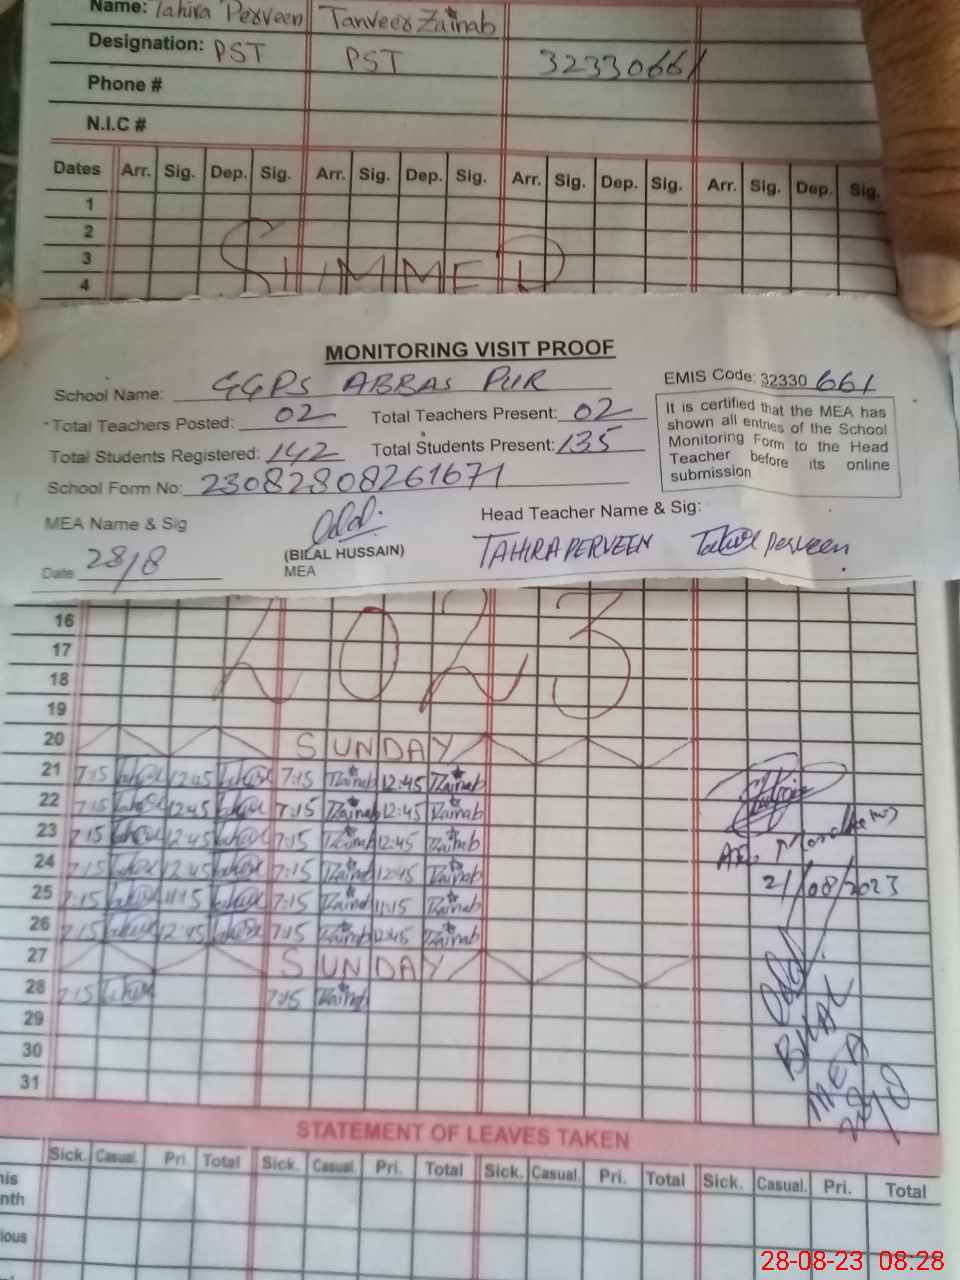 Name: Tahira Perveen Tanveer Zainab
Designation: PST PST 32330661
Phone #
N.I.C #
Dates Arr. Sig. Dep. Sig. Arr. Sig. Dep. Sig. Arr. Sig. Dep. Sig. Arr. Sig. Dep. Sig.
1
2
3 SUMMER
4
MONITORING VISIT PROOF
School Name: GGPS ABBAS PUR EMIS Code: 32330 661
Total Teachers Posted: 02 Total Teachers Present: 02
Total Students Registered: 142 Total Students Present: 135
School Form No: 23082808261671
It is certified that the MEA has
shown all entries of the School
Monitoring Form to the Head
Teacher before its online
submission
MEA Name & Sig Head Teacher Name & Sig:
(BILAL HUSSAIN) TAHIRA PERVEEN Tahira Perveen
Date 28/8 MEA
16
17 2023
18
19
20 SUNDAY
21 7:15 12:45 7:15 TZainab 12:45 TZainab
22 7:15 12:45 7:15 TZainab 12:45 TZainab
23 7:15 12:45 7:15 TZainab 12:45 TZainab
24 7:15 12:45 7:15 TZainab 12:45 TZainab
25 7:15 11:15 7:15 TZainab 11:15 TZainab
26 7:15 12:45 7:15 TZainab 12:45 TZainab
27 SUNDAY
28 7:15 7:15 TZainab
29
30
31
21/08/2023
BILAL
MEA
28/8
STATEMENT OF LEAVES TAKEN
Sick. Casual. Pri. Total Sick. Casual. Pri. Total Sick. Casual. Pri. Total Sick. Casual. Pri. Total
28-08-23 08:28